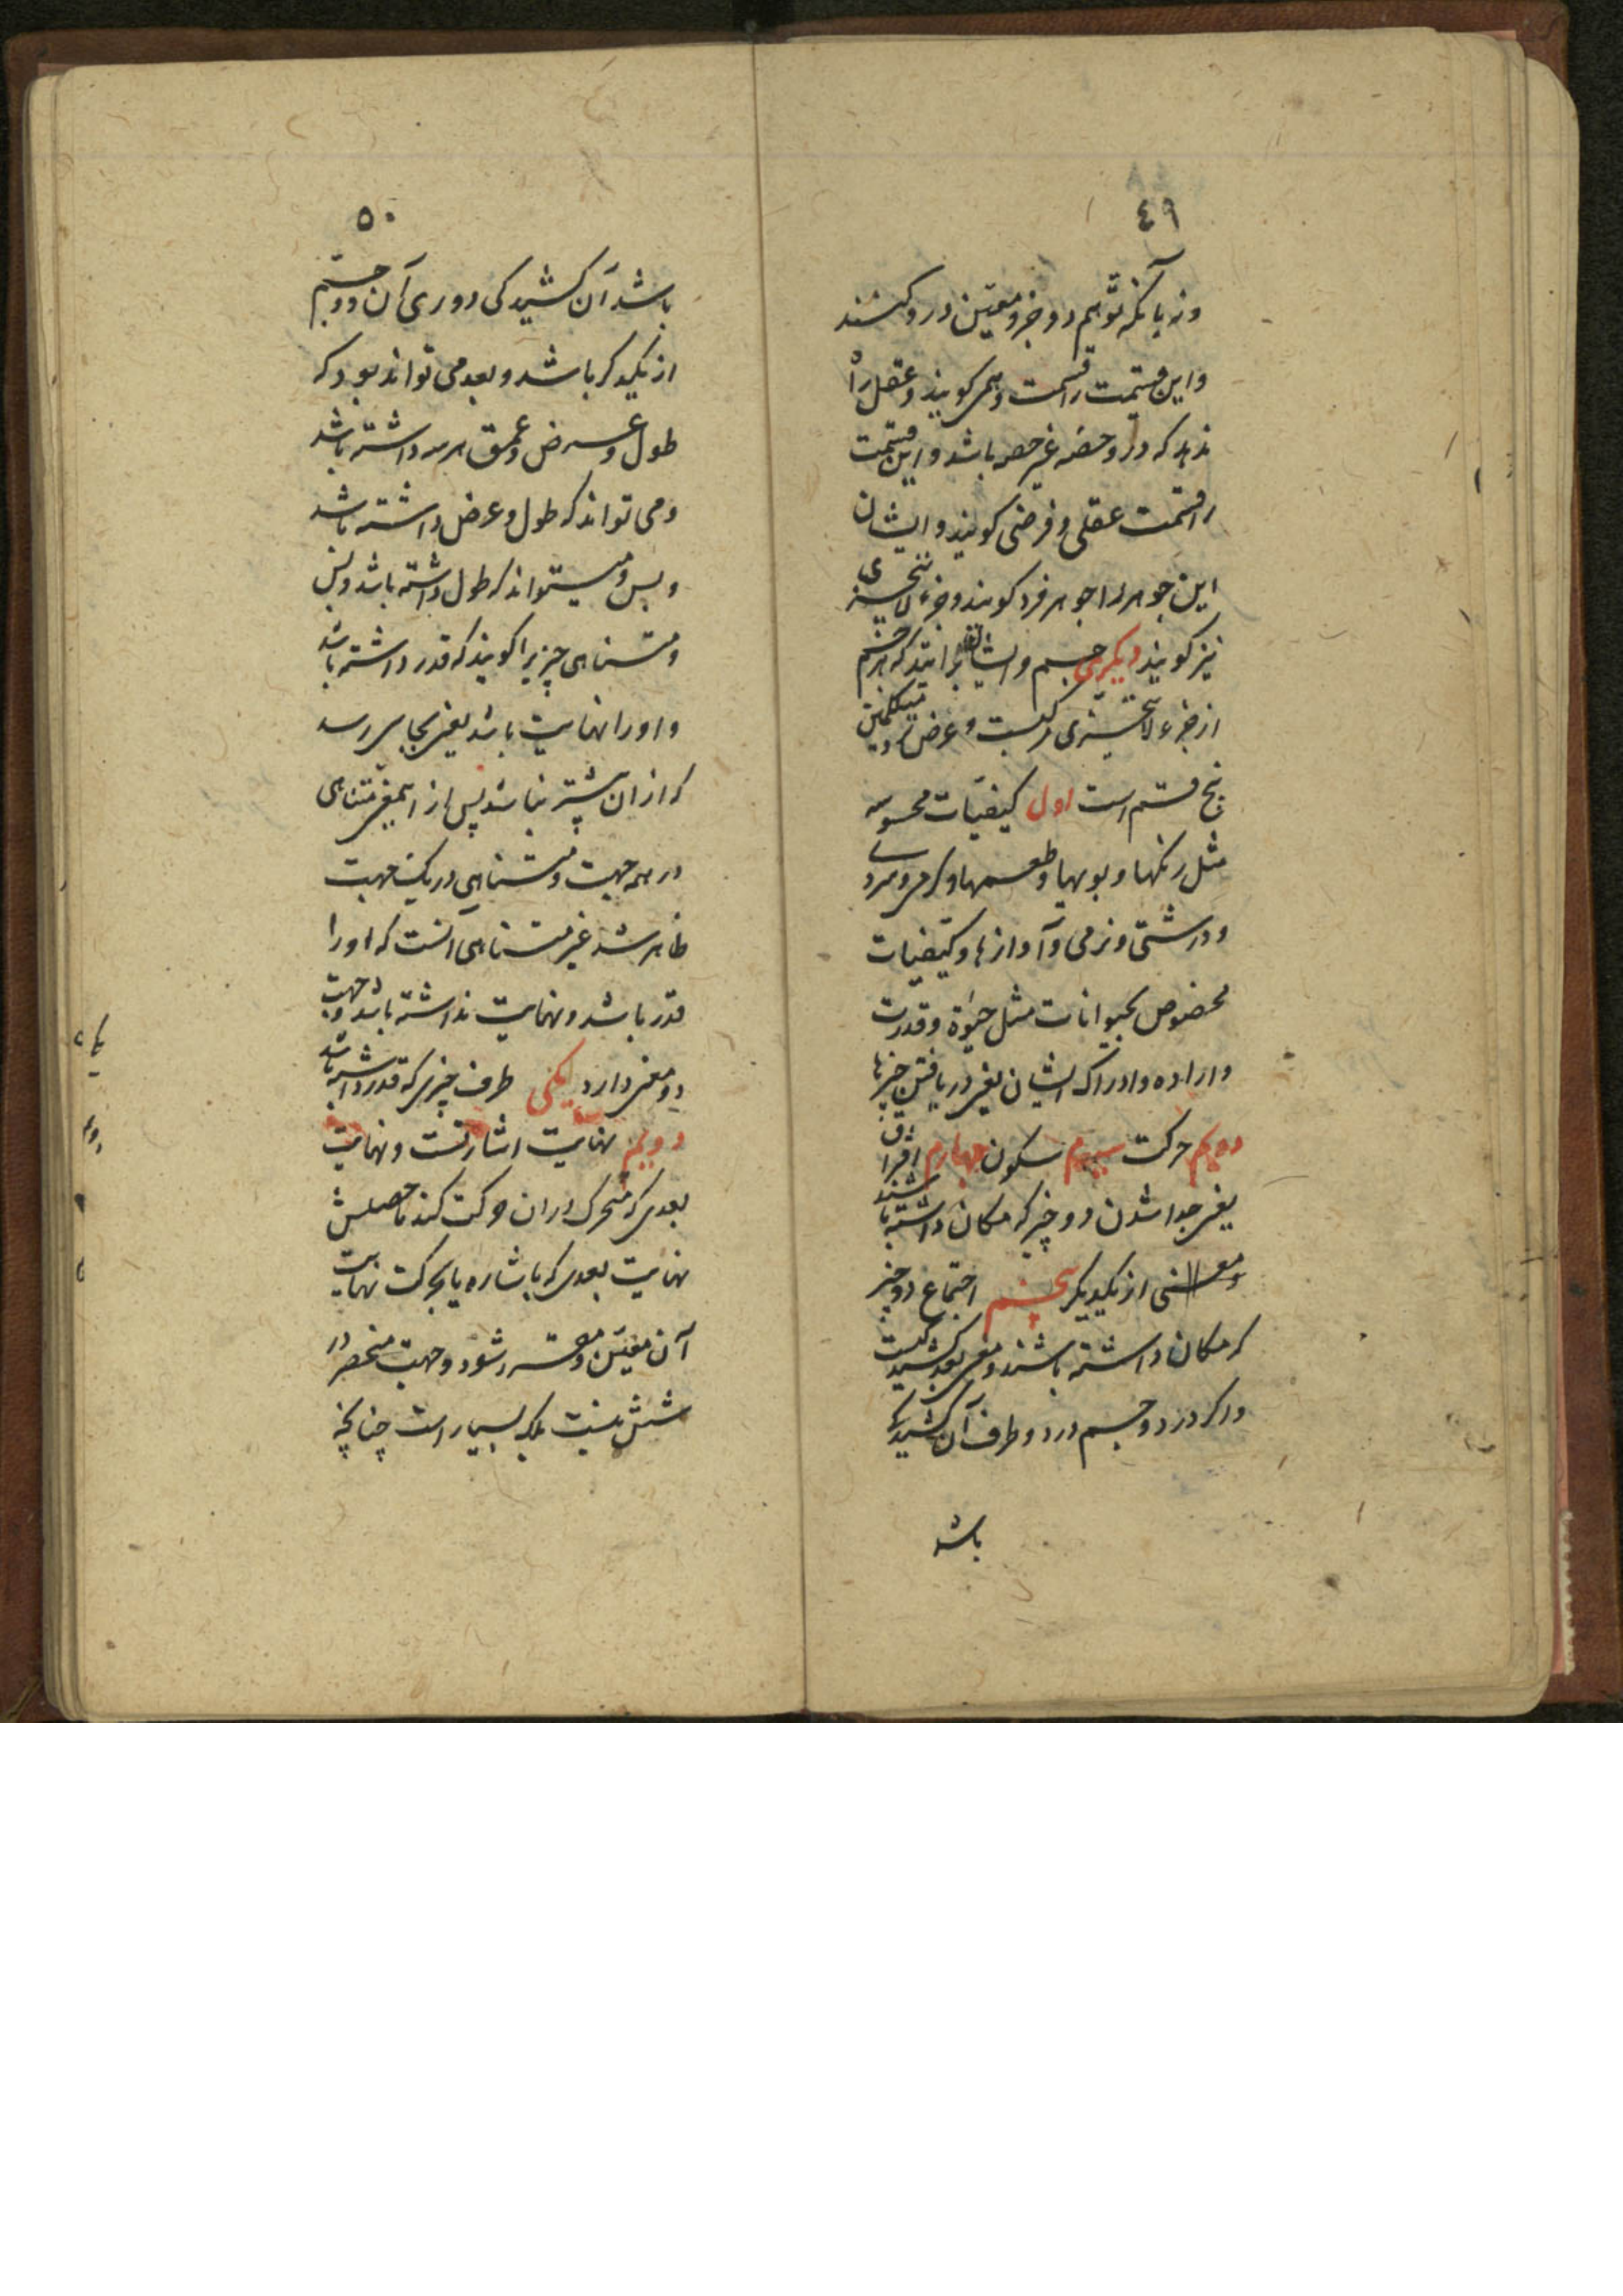 ٤٩
ونه بآنکه توهّم دو جزو معیّن درو کنند
واین قسمت را قسمت وهمی کویند وعقل راه
ندهد که درو حصّه غیر حصه باشد واین قسمت
را قسمت عقلی وفرضی کویند وایشان
این جوهر را جوهر فرد کویند وجزء لا یتجزی
نیز کویند دیکری جسم وایشان برانند که هر جسم
از جزء لا یتجزی مرکبست وعرض نزد متکلمین
پنج قسم است اول کیفیّات محسوسه
مثل رنکها وبویها وطعمها وکرمی وسردی
ودرشتی ونرمی وآوازها وکیفیات
مخصوص بحیوانات مثل حیٰوة وقدرت
واراده وادراک ایشان یعنی دریافتن چیزها
دویم حرکت سیوم سکون چهارم افتراق
یعنی جدا شدن دو چیز که مکان داشته باشند
از یکدیکر پنجم اجتماع دو چیز
که مکان داشته باشند ومعنی بعد کشیدکیست
واکر در دو جسم در دو طرف آن کشیدکی
باشد
٥٠
باشد آن کشیدکی دوری آن دو جسم
از یکدیکر باشد وبعد می تواند بود که
طول وعرض وعمق هر سه داشته باشد
ومی تواند که طول وعرض داشته باشد
وبس ومیتواند که طول داشته باشد وبس
ومتناهی چیزیرا کویند که قدر داشته باشد
واورا نهایت باشد یعنی بجایی رسد
که از ان بیشتر نباشد پس از اینمعنی متناهی
در همه جهت ومتناهی در یک جهت
ظاهر شد غیر متناهی آنست که اورا
قدر باشد ونهایت نداشته باشد وجهت
دو معنی دارد یکی طرف چیزی که قدر داشته باشد
دویم نهایت اشارتست ونهایت
بعدی که متحرک در ان حرکت کند حاصلش
نهایت بعدی که باشاره یا بحرکت نهایت
آن معیّن ومقرر شود وجهت منحصر در
شش نیست بلکه بسیار است چنانچه